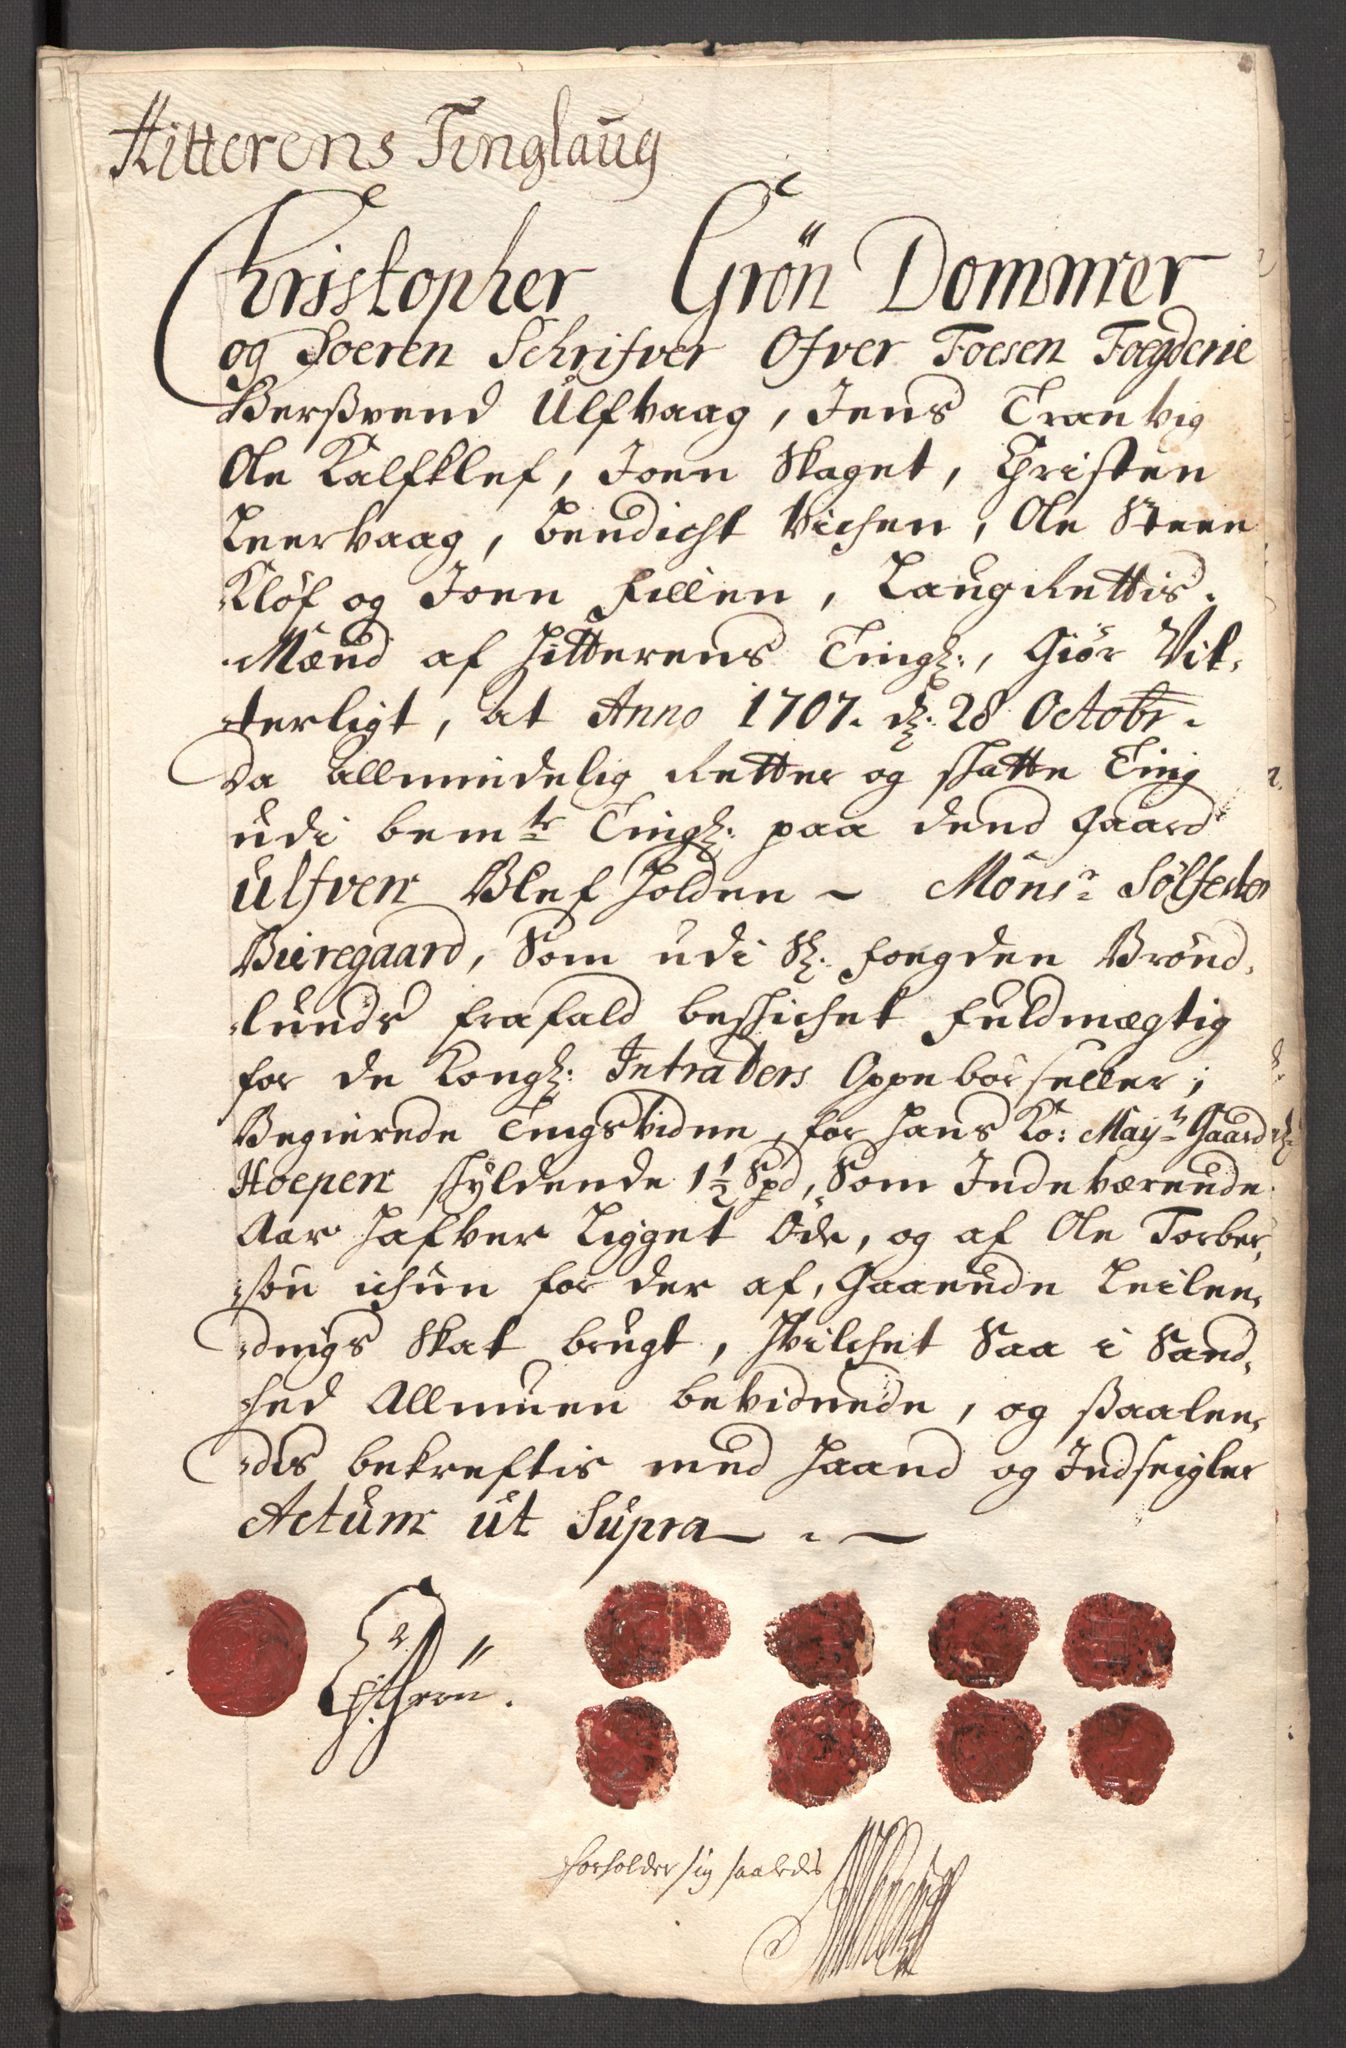 Hitterens Tinglaug
Christopher Grön Dommer
og Soeren Schrifver Ofver Foesen Foegderie
Berßvend Ulfvaag, Jens Tranvig
Ole Kalfklef, Joen Skaget, Christen
Leervaag, Bendicht Vichen, Ole Steen
Kløf og Joen Fillen, LaugRettis.
Mænd af Hitterens Tingl:, Giör Vit,
terligt, at Anno 1707. dl: 28 Octobr.
da allmindelig Retter og skatte Ting
udi bemte Tingl: paa dend Gaard
Ulfven Blef holden ~ Monsr Sölfester
Bieregaard, Som udi Sl: foegden Brönd,
lunds frafald beskichet fuldmægtig
for de Kongl: Intraders Oppebörseller,
Begierede Tingsvidne, for hans Ko: Mayts Gaard
Hoepen skyldende 1½ Spd, Som Indeværende
Aar hafver Ligget Öde, og af Ole Torber,
sön ichun for der af, Gaaende Leilen,
dings Skat brugt, hvilchet Saa i Sand,
hed Allmuen bevidnede, og ßaalen,
des bekreftis med haand og Indseigler
Actum ut Supra ~ . ~
Chr: Grön.
forholder sig saaledes